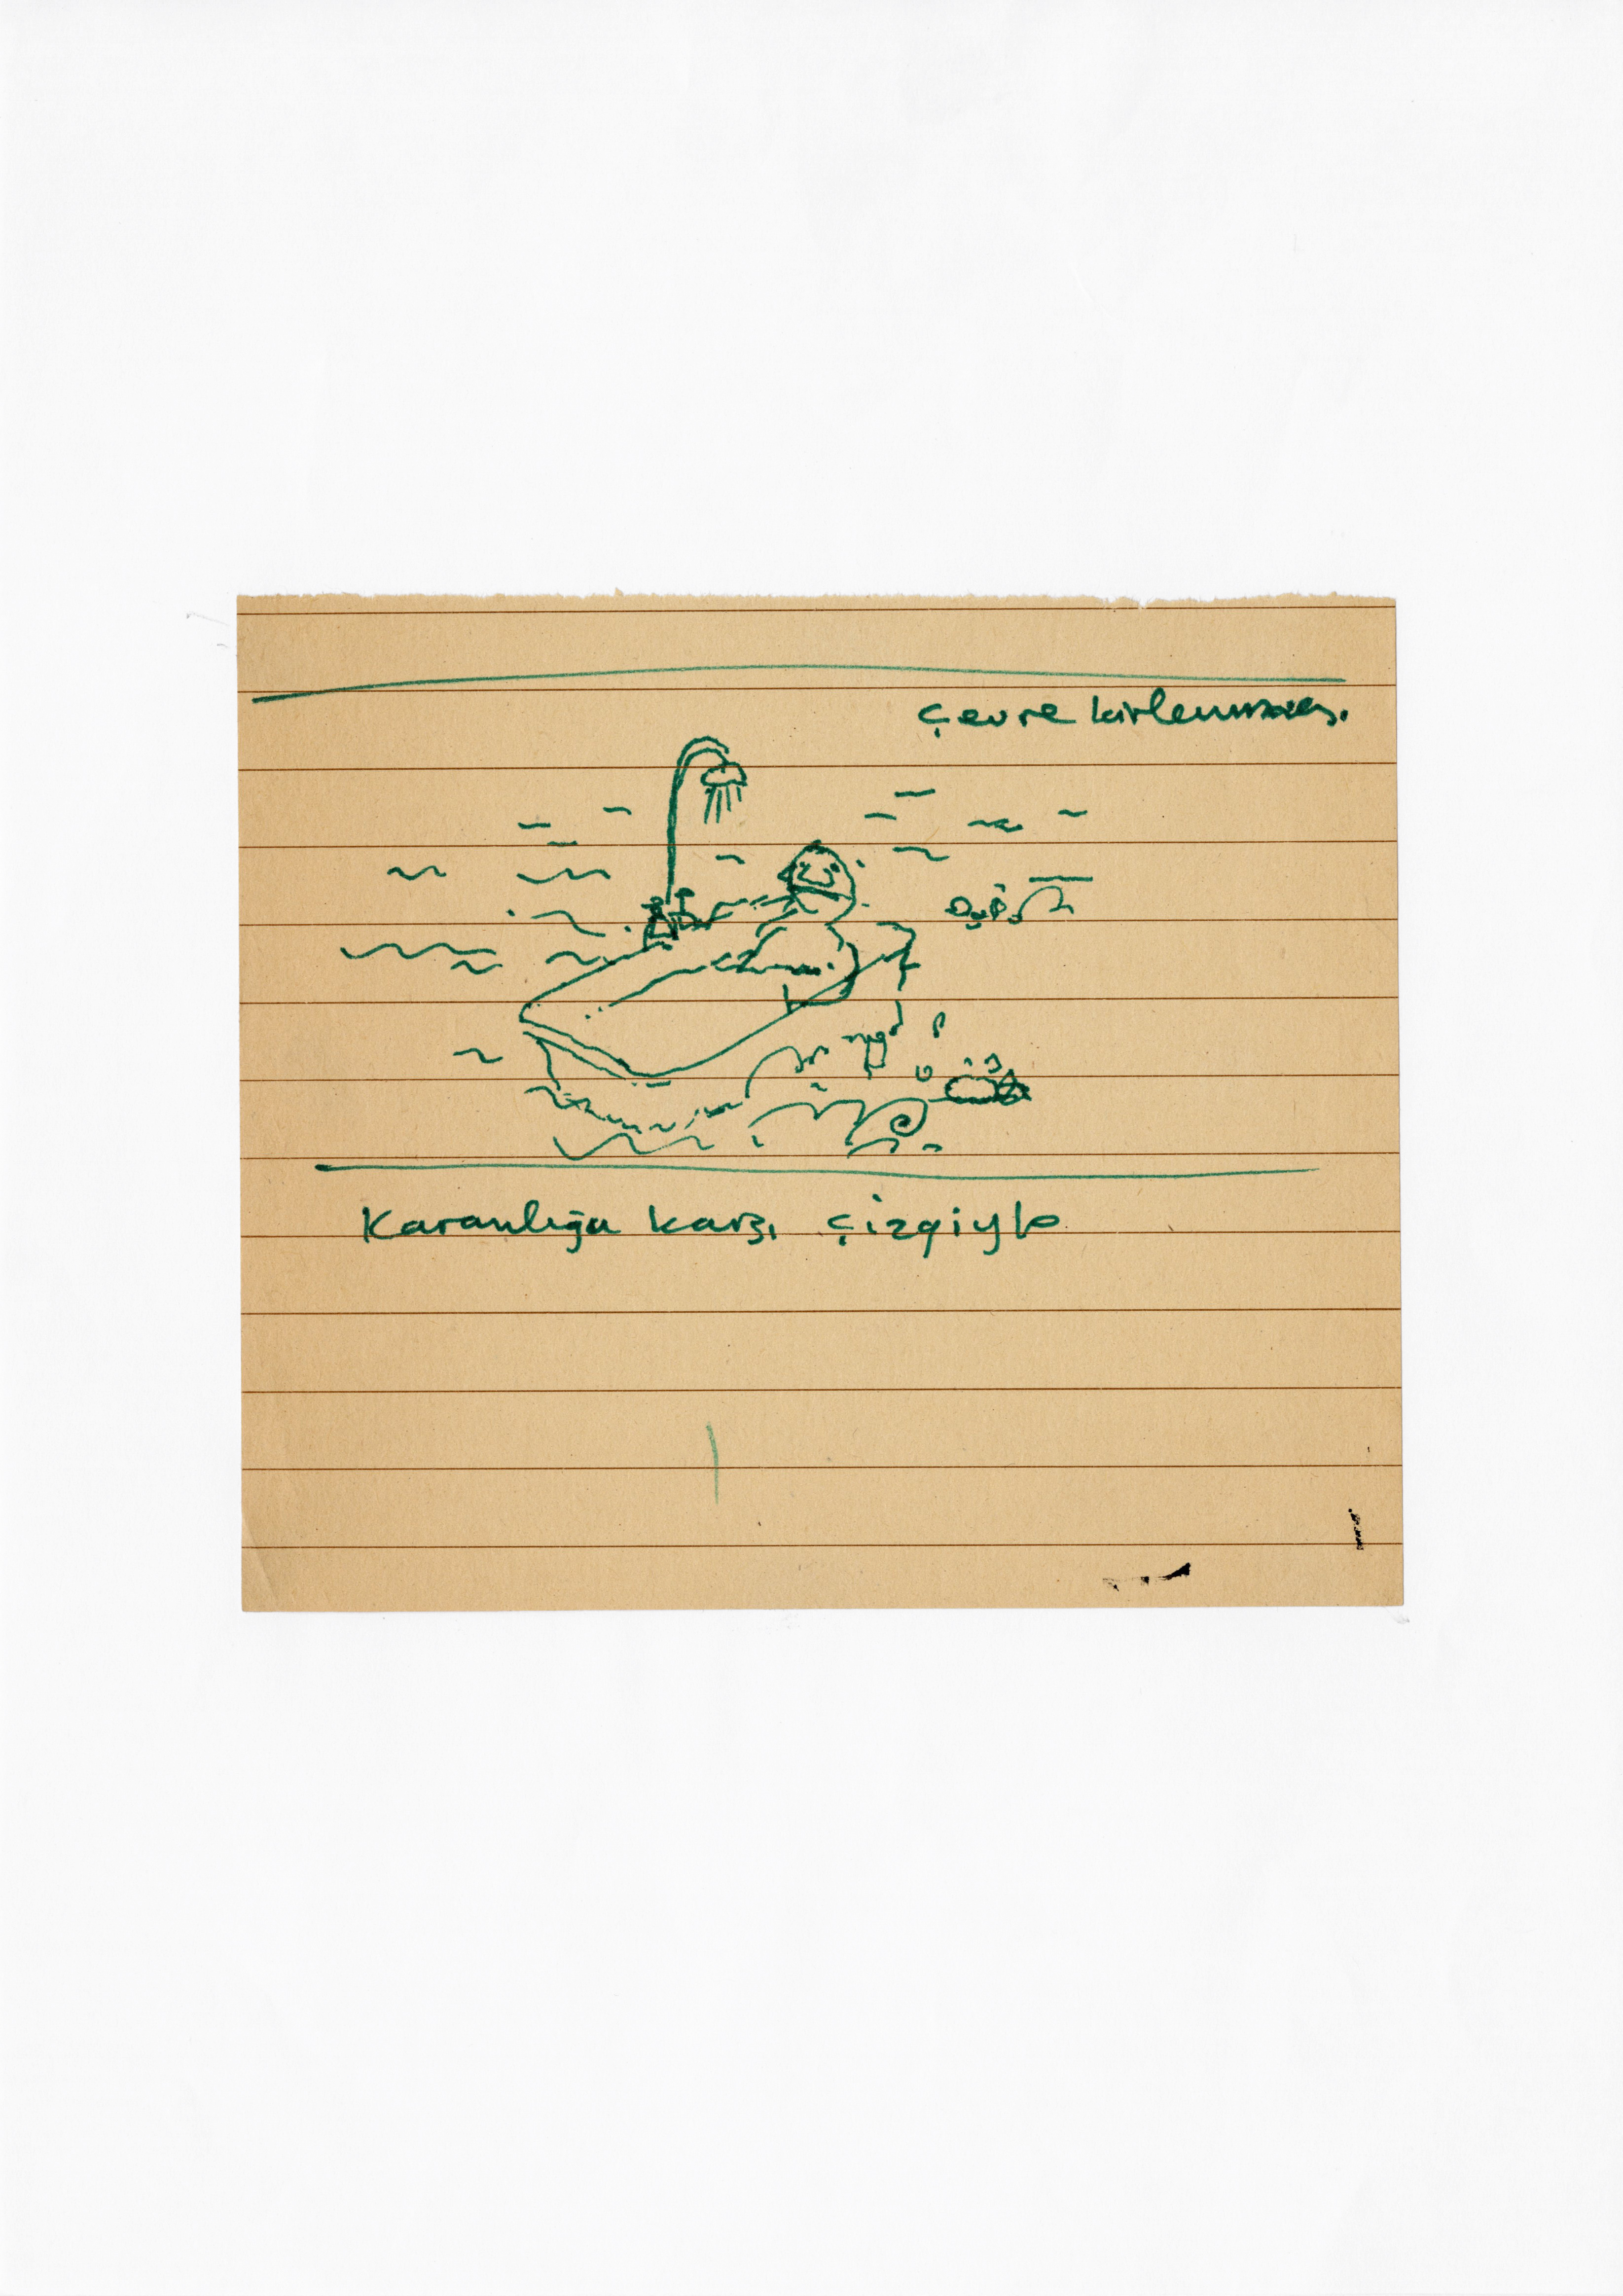 Çevre kirlenmesi.
Karanlığa karşı çizgiyle